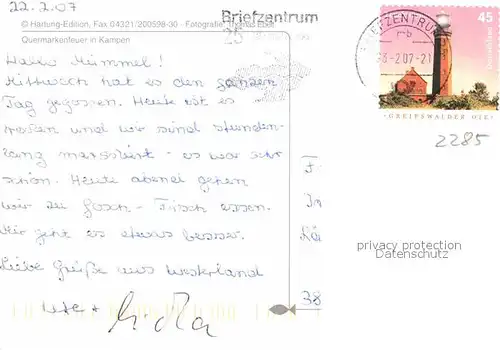 22.2.07
© Hartung-Edition, Fax 04321/200598-30 - Fotografie: Thomas Ebelt
Quermarkenfeuer in Kampen
Briefzentrum
25
BRIEFZENTRUM
rb
-2.07-21
45
Deutschland
GREIFSWALDER OIE
2285
Hallo Mümmel!
Mittwoch hat es den ganzen
Tag gegossen. Heute ist es
und wir sind stunden-
lang marschiert - es war sehr
schön. Heute abend gehen
wir zu Gosch - Fisch essen.
Mir geht es etwas besser.
Liebe Grüße aus Westerland
Ute +
38
privacy protection
oldthing.com